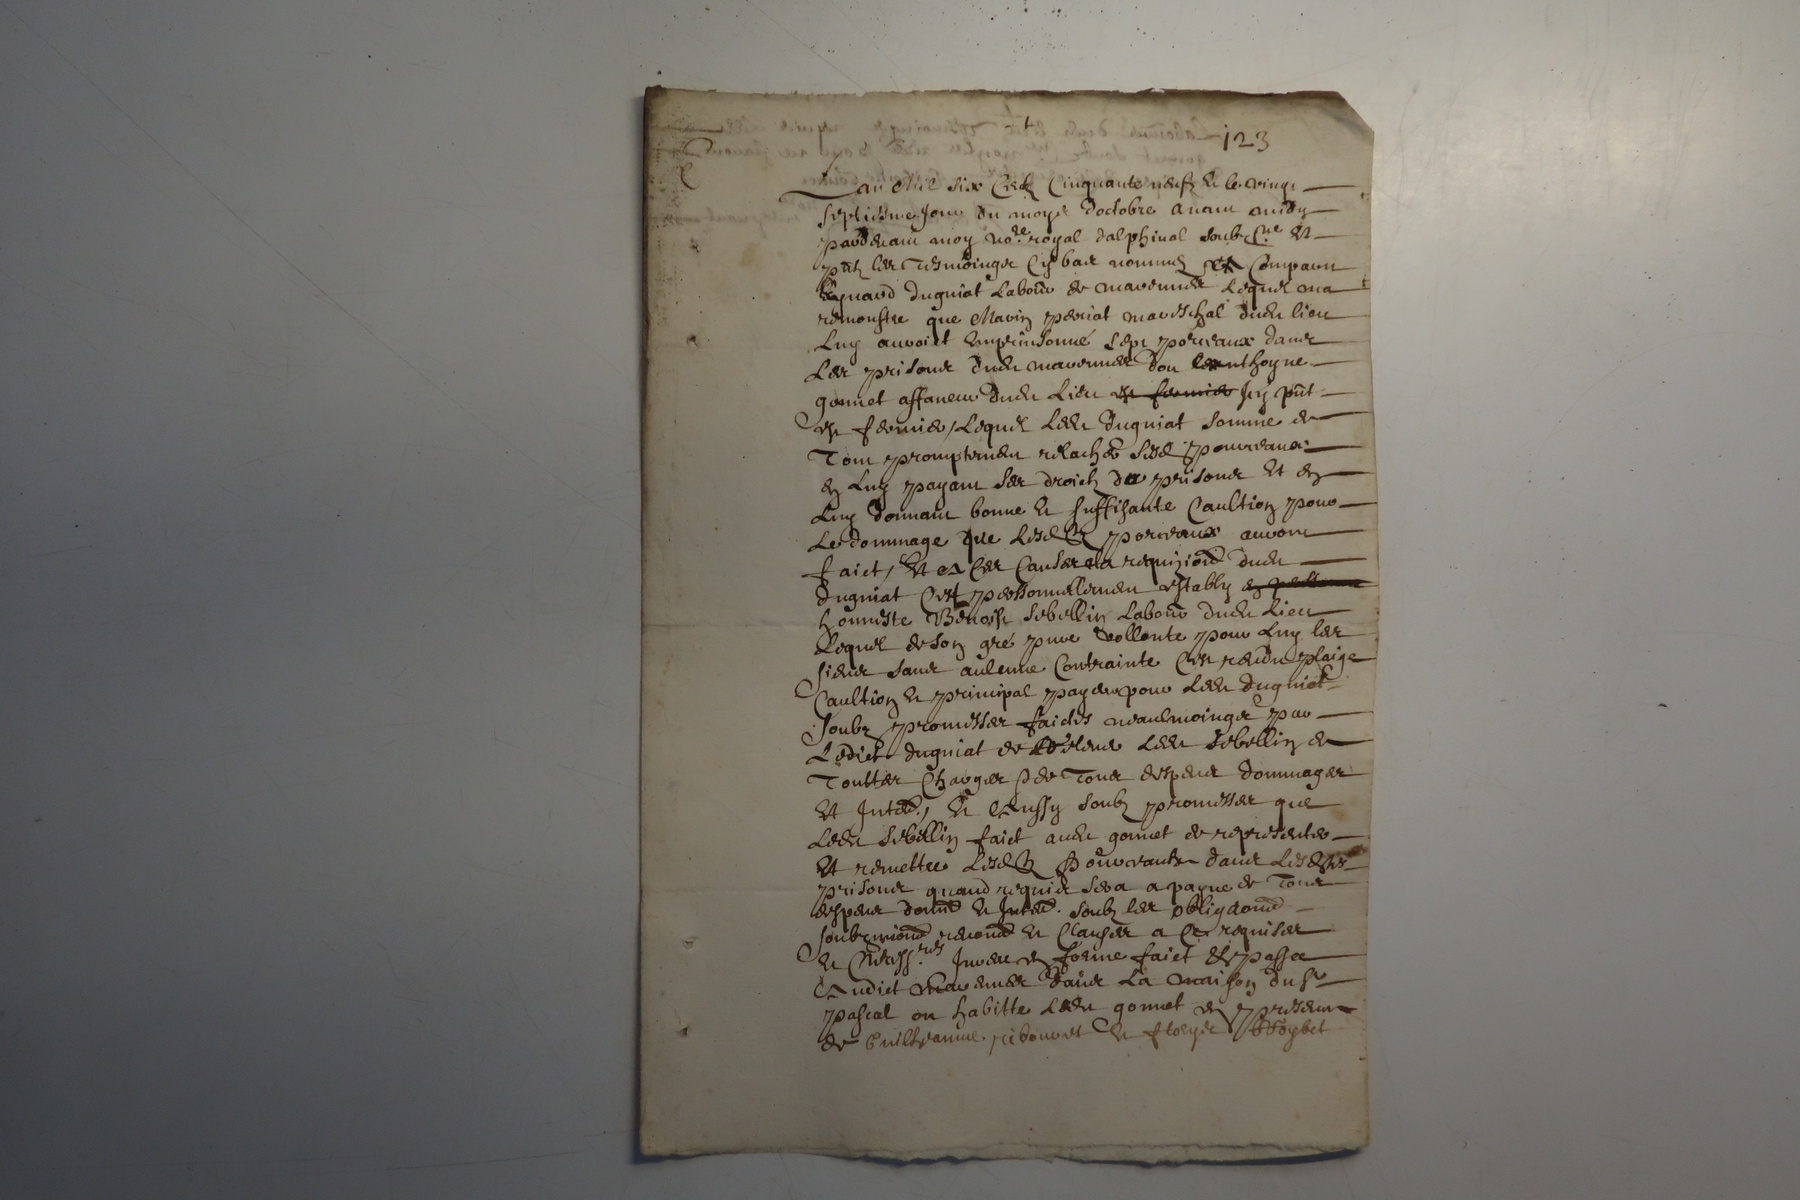 123
Lan Mil six Centz Cinquante neufz et le vingt
septiesme Jour du moys doctobre avant midy
pardevant moy no.re royal dalphinal soubzsné et
pñtz les tesmoingz cy bas nommez Compareu
duguiat Labour de Lequel ma
remonstre que Marin periat mareschal dudit lieu
Luy auroict emprisonné sept porceaux dans
Les prisons dudit dou anthoyne
gonnet affaneur dudit Lieu est fermier Icy pñt
est fermier, Lequel Ledit duguiat somme de
Tout promptement relacher sesd pourceaux
en Luy payant ses droictz de prisons et en
Luy donnant bonne et suffizante Caultion pour
Le dommage que Lesdtz porceaux auront
faict, Et a ces Causes a la requizion dudit
duguiat cest personnellement estably
honneste Benoist sebellin Labour dudit Lieu
Lequel de son gré pure vollonte pour Luy les
siens sans aulcune Contrainte cest rendu plaige
Caultion et principal payeur pour Ledit duguiat
soubz promesses faictes neaulmoingz par
Ledict duguiat de relever Ledit sebellin de
Touttes Charges et de Tous despens dommages
et Interestz, et Aussy soubz promesses que
Ledit sebellin faict audit gonnet de representer
et remettre Lesdtz pourceaux dans Lesdites
prisons quand requis sera a payne de Tous
despens dom et Inter. soubz les obliga°ns
soubzmi°ns renon°ns et Clauses a ce requises
et necess.res Juré en forme faict et passé
Audict dans La maison du sr
pascal ou habitte Ledit gonnet en presence
de Guilleaume et